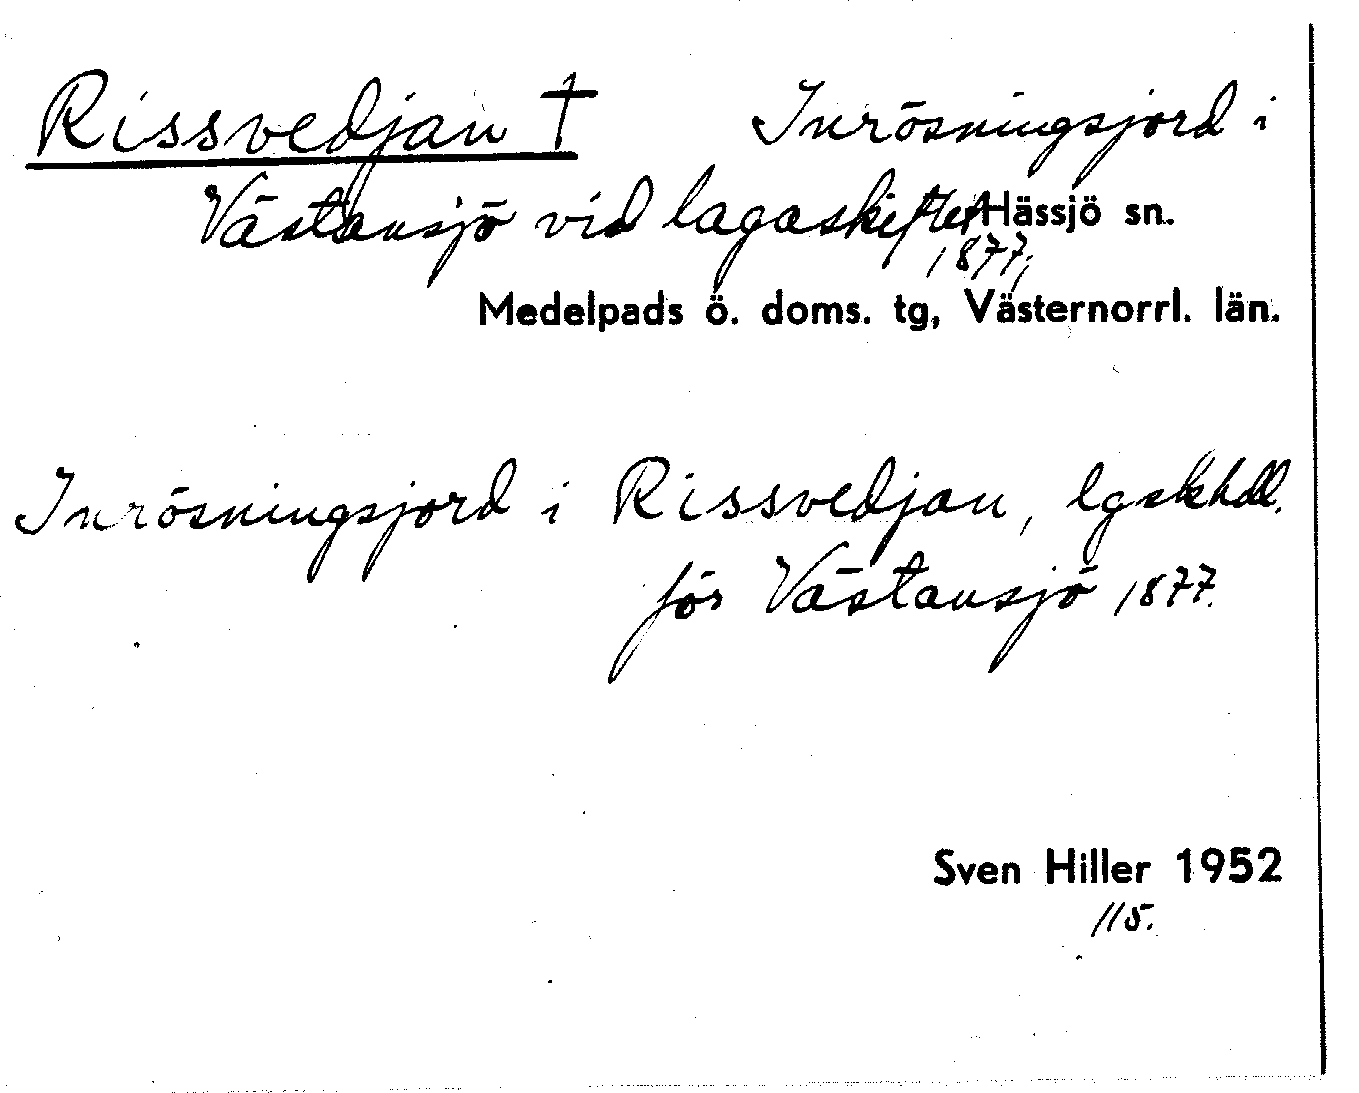 Rissvedjan † Inrösningsjord i
Västansjö vid lagaskiftet Hässjö sn.
1877,
Medelpads ö. doms. tg, Västernorrl. län.
Inrösningsjord i Rissvedjan, lgskhdl.
för Västansjö 1877.
Sven Hiller 1952
115.